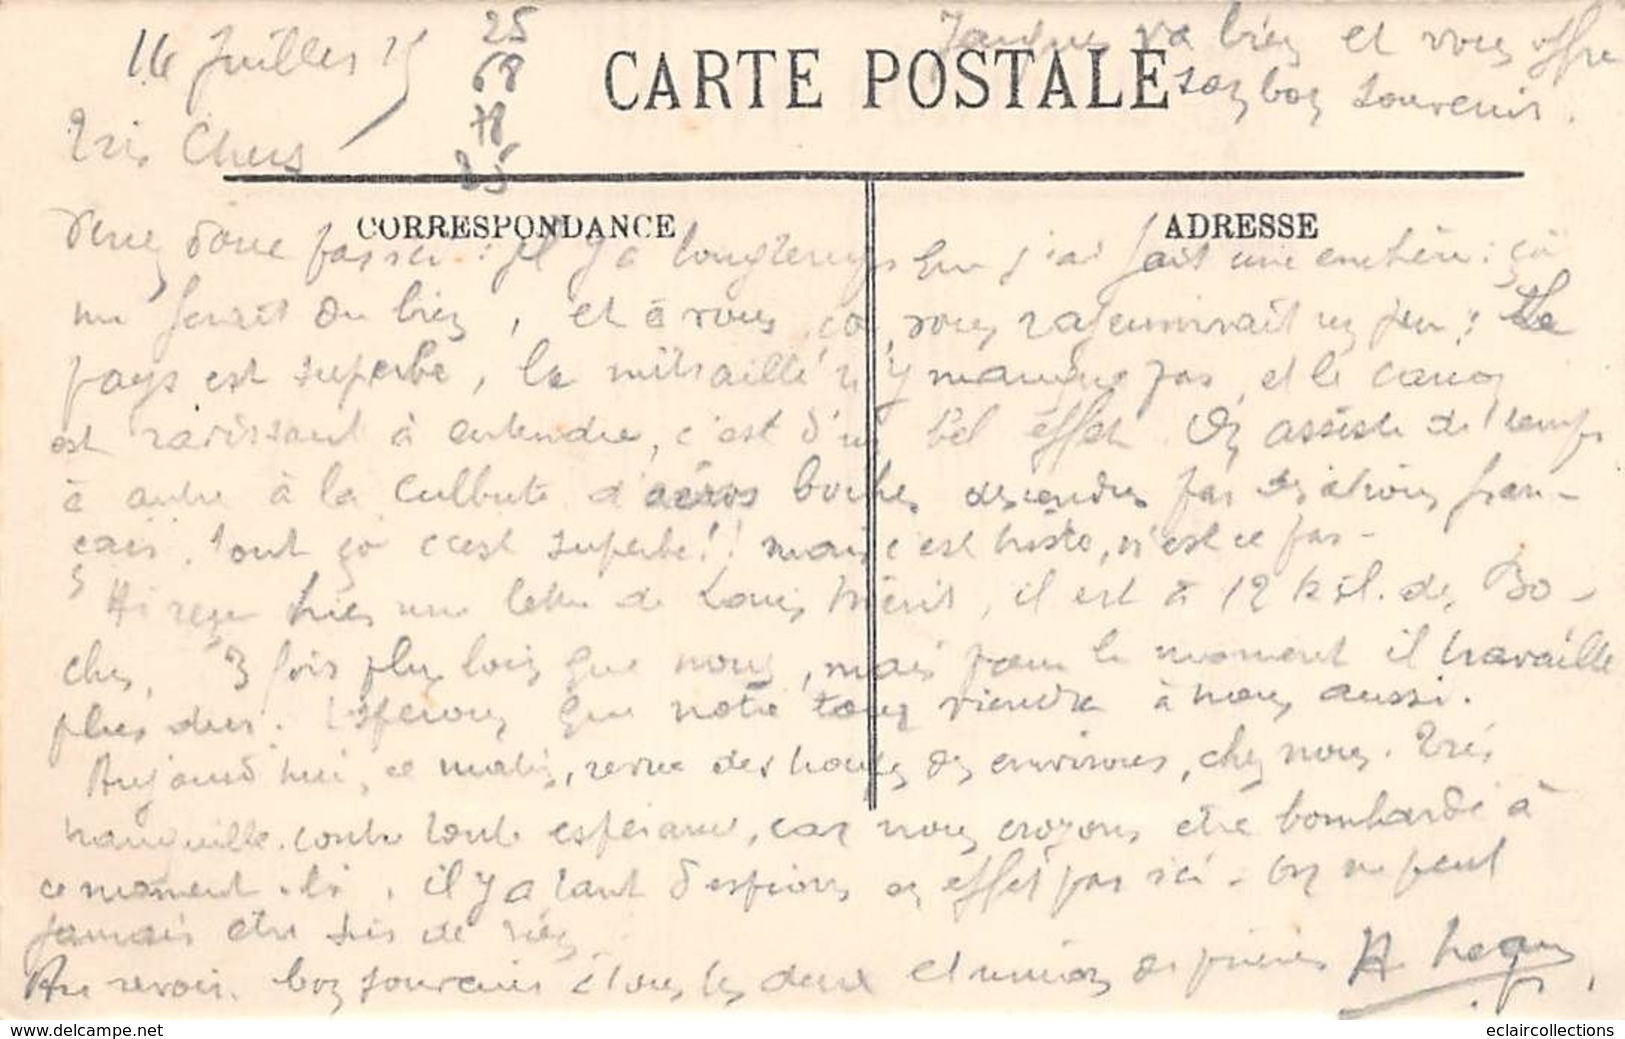 14 Juillet 15
25
68
78
85
va bien et vous offre
CARTE POSTALE
son bon souvenir.
Très Chers
CORRESPONDANCE
ADRESSE
Venez donc par ici : Il y a longtemps j'ai fait une : ça
me ferait du bien, et à vous ça vous rajeunirait un peu : Le
pays est superbe, la mitraille n'y manque pas, et le canon
est ravissant à entendre, c'est d'un bel effet. On assiste de temps
à autre à la culbute d'aéros boches descendus par des avions fran-
çais. Tout ça c'est superbe!! mais c'est triste, n'est ce pas-
Ai reçu hier une lettre de Louis, il est à 12 kil. des Bo-
ches, 3 fois plus loin que nous, mais pour le moment il travaille
plus dur. Espérons que notre tour viendra à nous aussi.
Aujourd'hui, ce matin, revue des des environs, chez nous. Très
tranquille contre toute espérance, car nous croyons être bombardé à
ce moment-là, il y a tant d'espions en effet par ici - On ne peut
jamais être sûr de rien.
Au revoir, bon souvenir à tous les deux et union de prières A
www.delcampe.net
eclaircollections